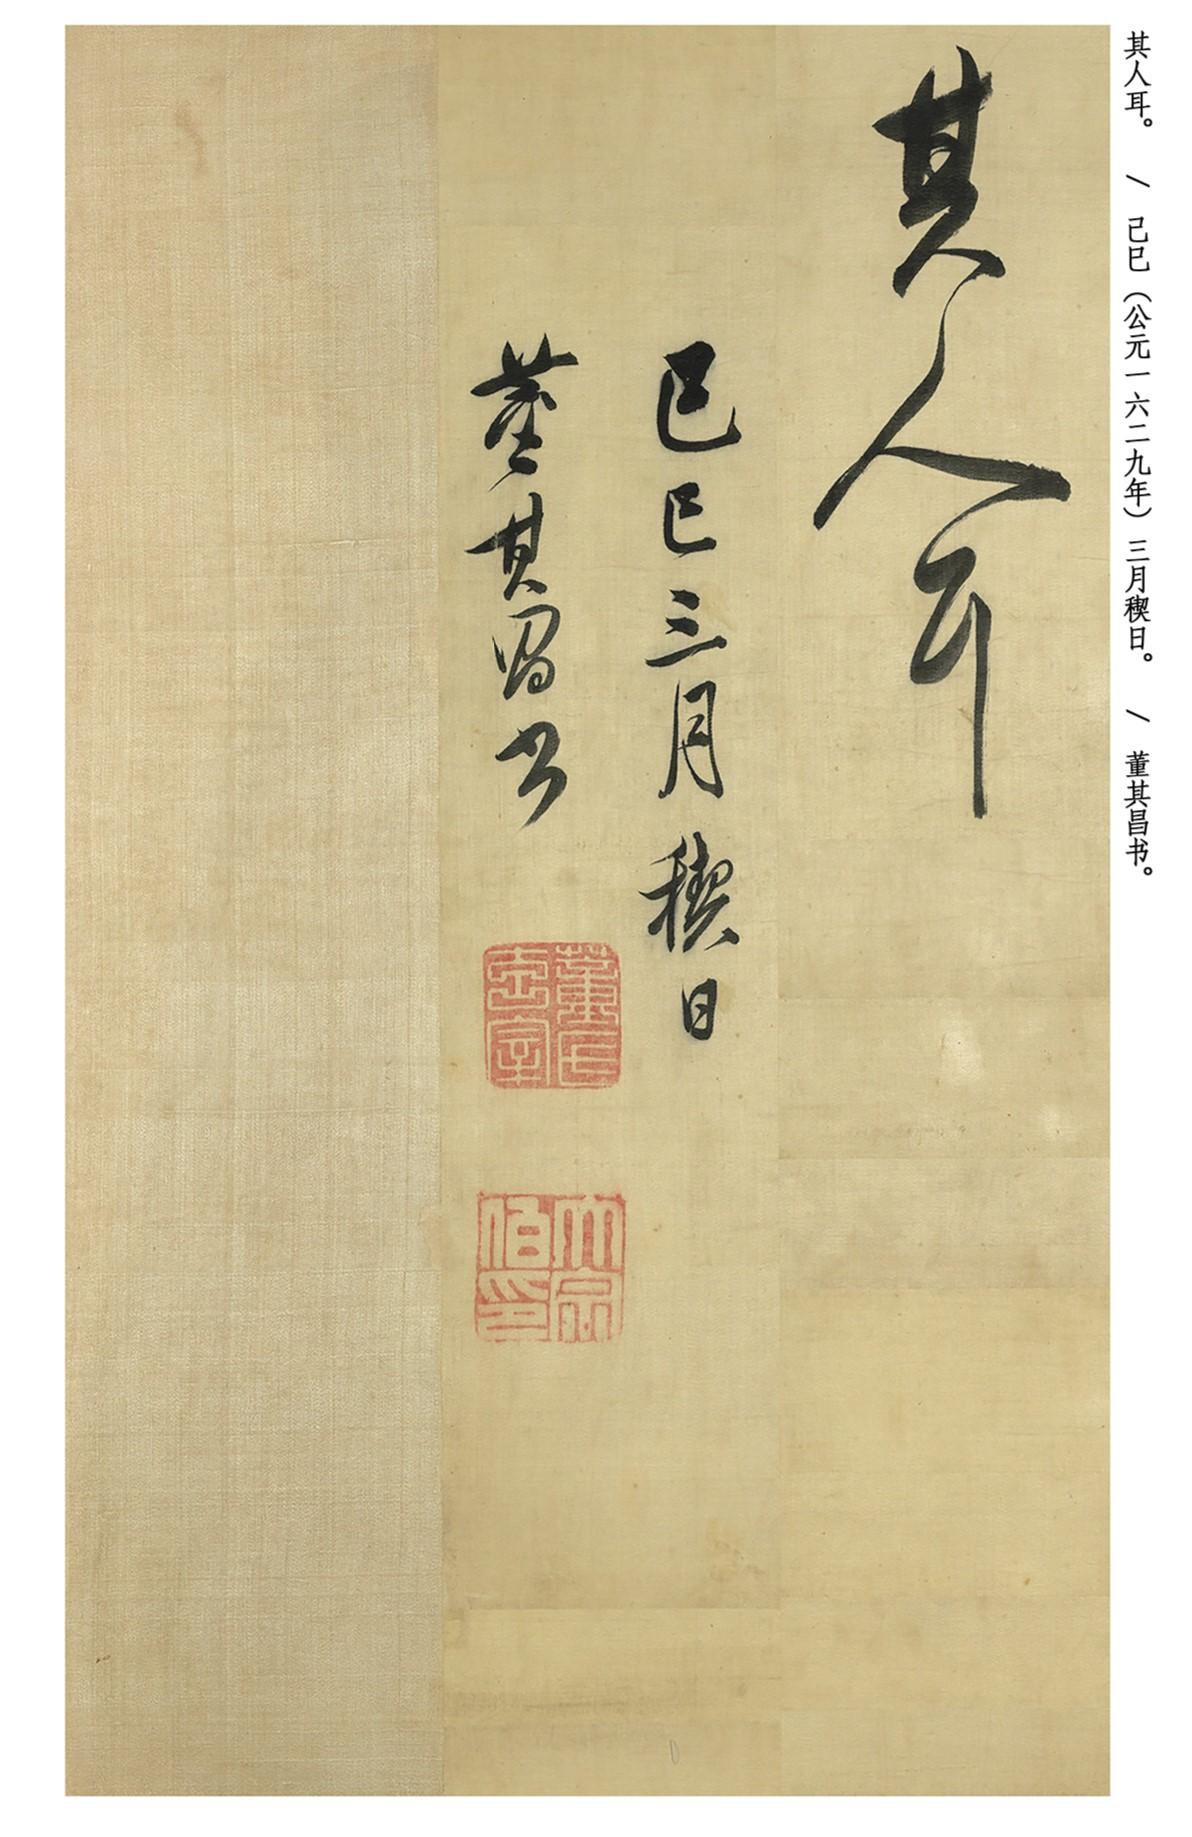 其人耳。 / 己巳（公元一六二九年）三月稧日。 / 董其昌书。
其人耳
己巳三月稧日
董其昌書
董氏玄宰
大宗伯印